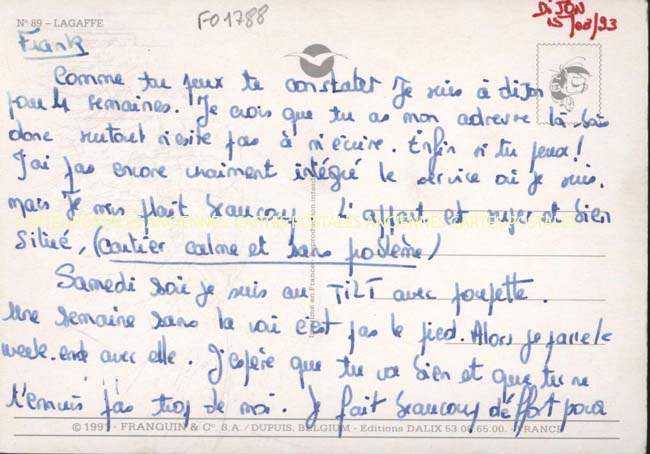 N° 89 – LAGAFFE
FO1788
DiJON
15/08/93
Frank
Comme tu peux te constater Je suis à diJon
pour 4 semaines. Je crois que tu as mon adresse là-bas
donc surtout n'esite pas à m'écrire. Enfin si tu peux!
J'ai pas encore vraiment intégré le service où je suis.
mais Je m'y plait beaucoup. L'appart est super et bien
Silué, (Cartier calme et sans problème)
Samedi soir je suis au TILT avec poupette.
Une semaine sans la voir c'est pas le pied. Alors je passe le
week-end avec elle. J'espère que tu va bien et que tu ne
t'ennuis pas trop de moi. Je fait beaucoup d'effort pour
© 1991 - FRANQUIN & C°. S.A. / DUPUIS. BELGIUM - Editions DALIX 53.08.65.00. - FRANCE